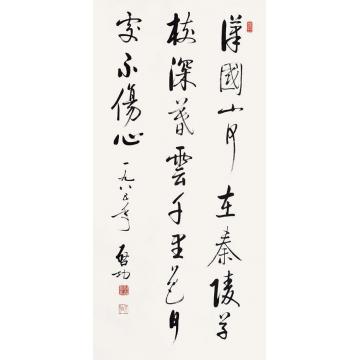 漢國山河在秦陵草
樹深暮雲千里色無
處不傷心 一九八五年 啓功